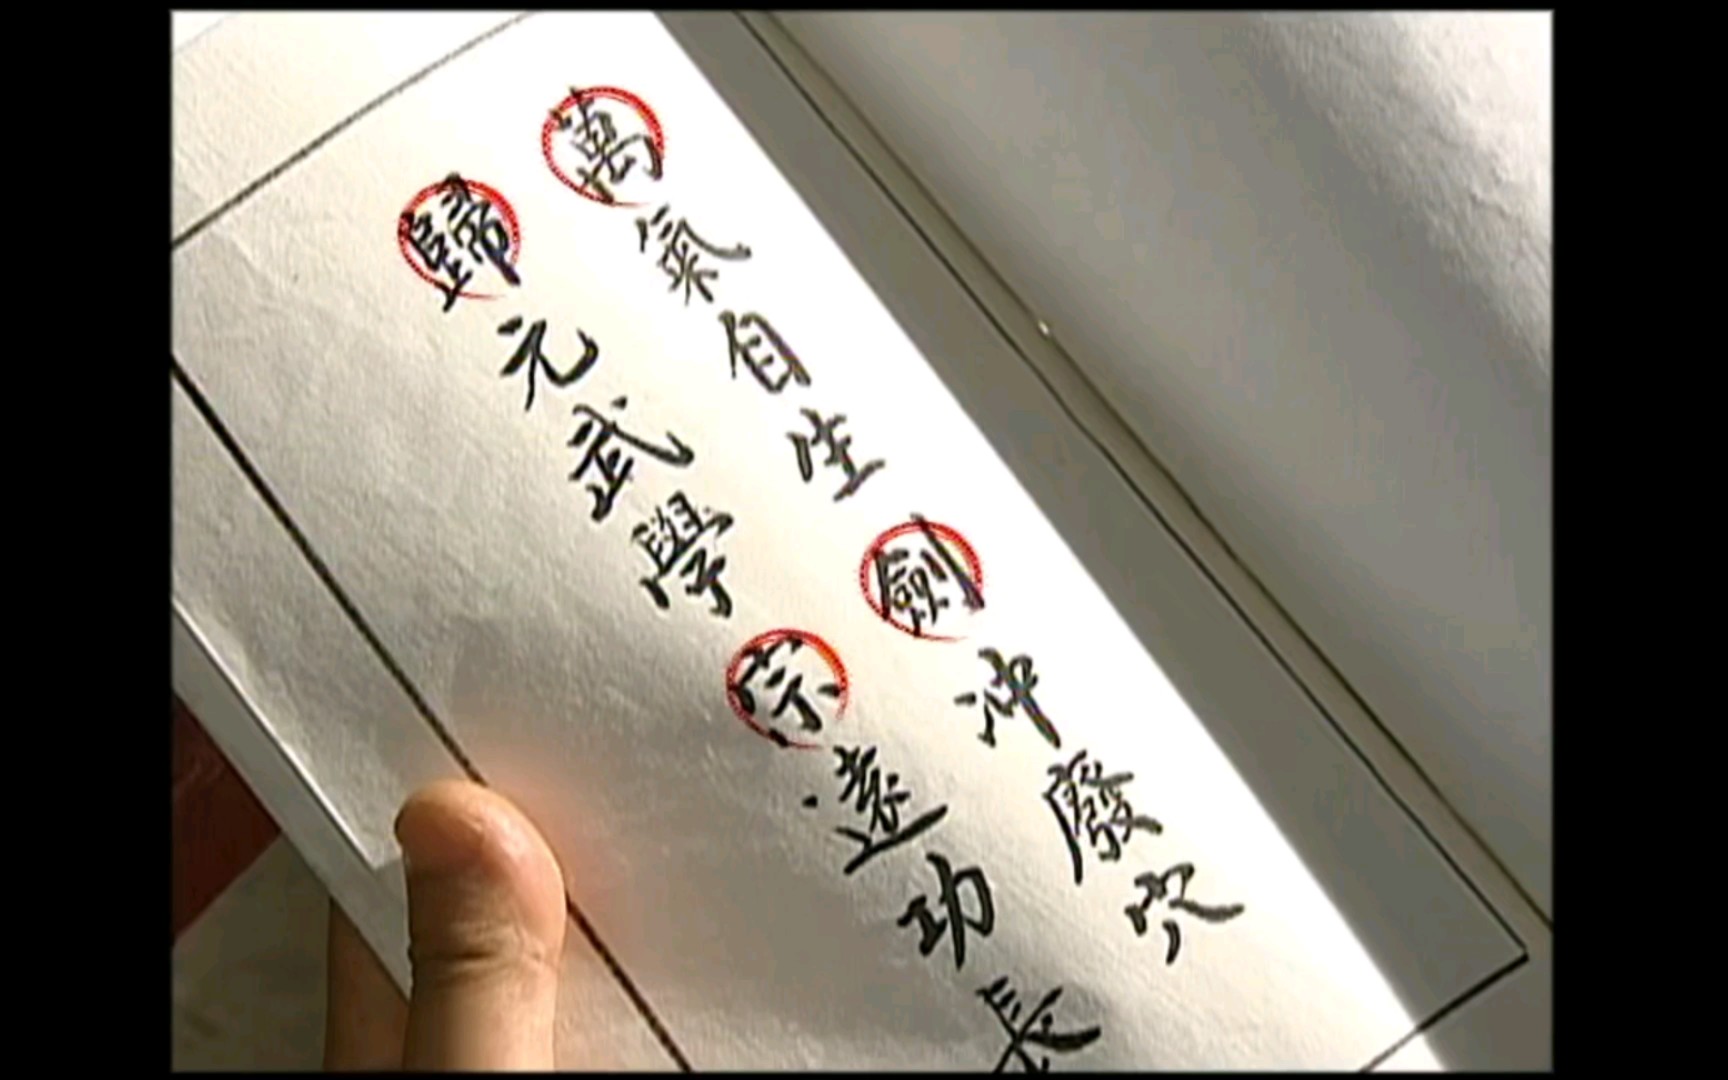 萬氣自生劍冲廢穴
歸元武學宗遠功長